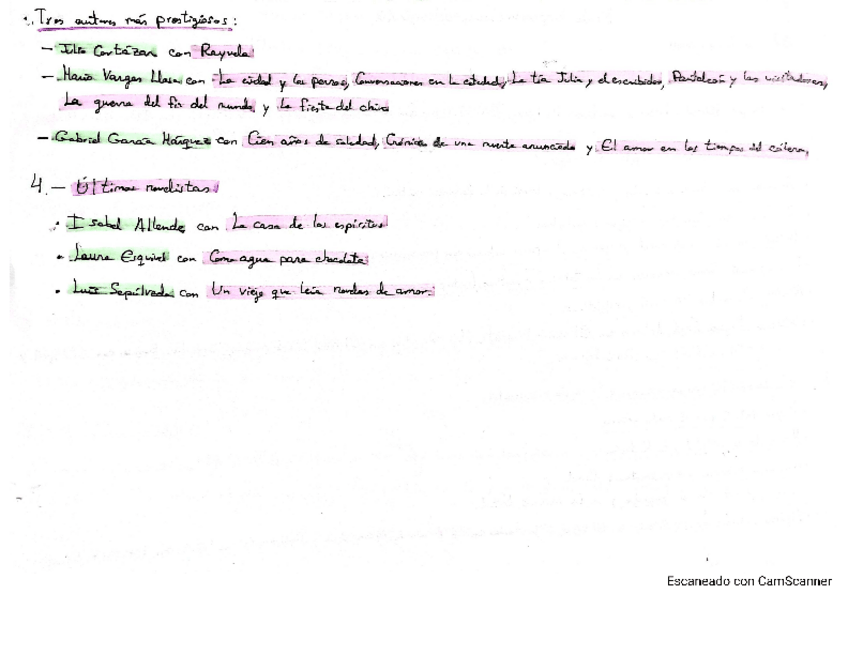 Tres autores más prestigiosos:
- Julio Cortázar con Rayuela
- Mario Vargas Llosa con La ciudad y los perros, Conversaciones en la catedral, La tía Julia y el escribidor, Pantaleón y las visitadoras,
La guerra del fin del mundo y La fiesta del chivo
- Gabriel García Márquez con Cien años de soledad, Crónica de una muerte anunciada y El amor en los tiempos del cólera.
4.- Últimos novelistas:
· Isabel Allende con La casa de los espíritus
· Laura Esquivel con Como agua para chocolate
· Luis Sepúlveda con Un viejo que leía novelas de amor.
Escaneado con CamScanner